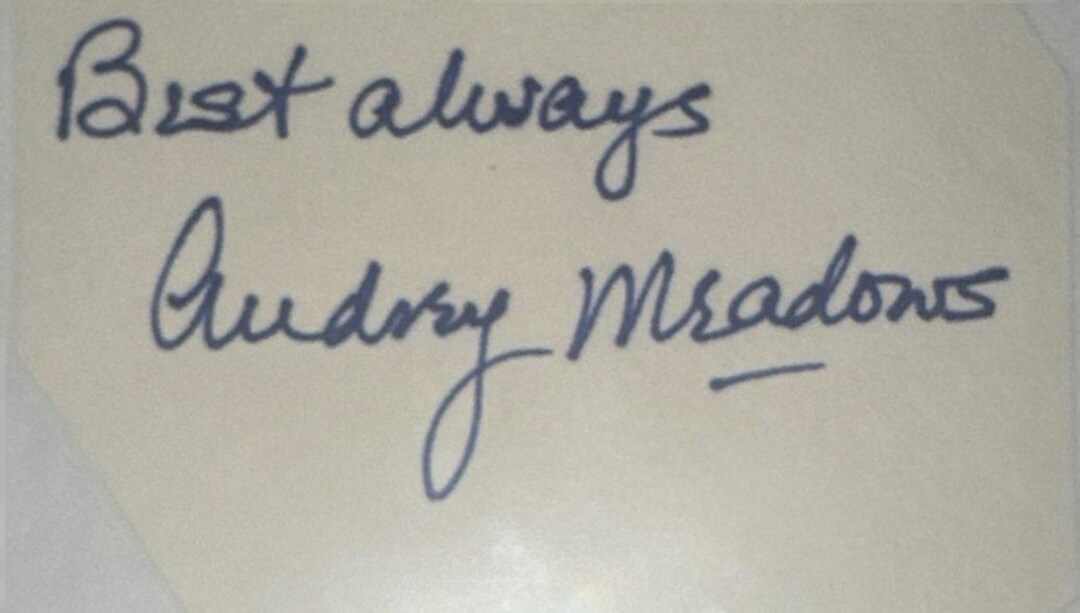 Best always
Audrey Meadows